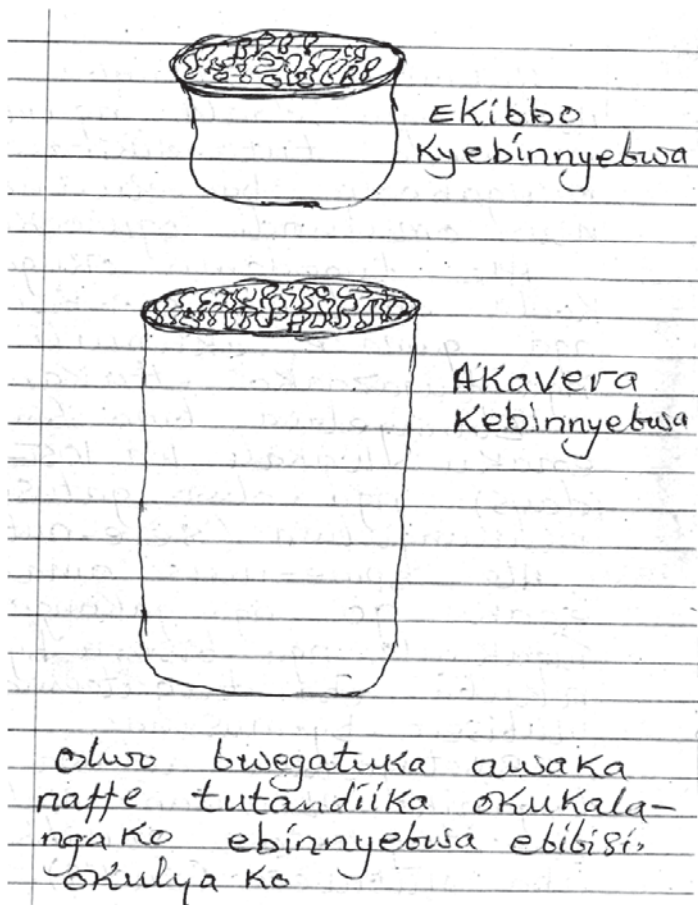 Ekibbo
Kyebinnyebwa
Akavera
Kebinnyebwa
olwo bwegatuka awaka
naffe tutandiika okukala-
ngako ebinnyebwa ebibisi,
okulya ko